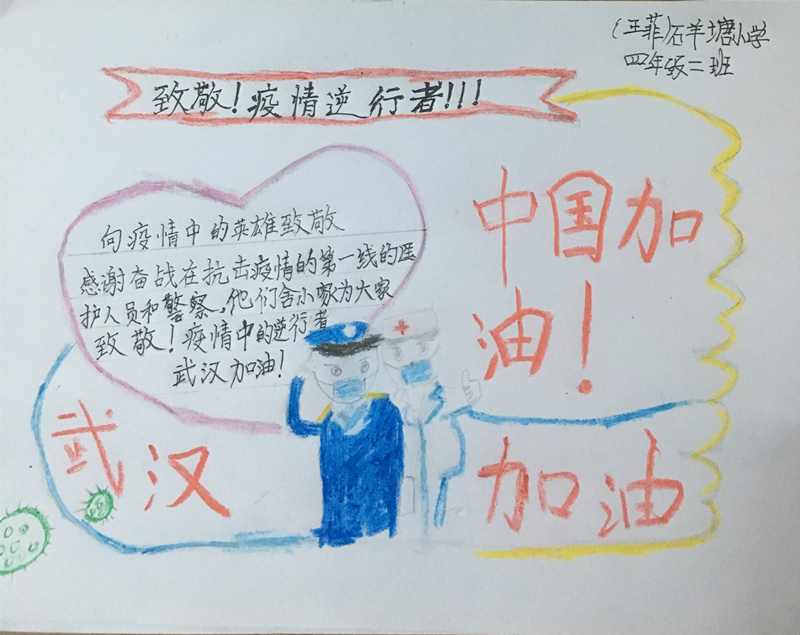 (王菲)石羊塘小学
四年级二班
致敬！疫情逆行者!!!
向疫情中的英雄致敬
感谢奋战在抗击疫情的第一线的医
护人员和警察。他们舍小家为大家
致敬！疫情中的逆行者
武汉加油！
中国加
油！
武汉 加油